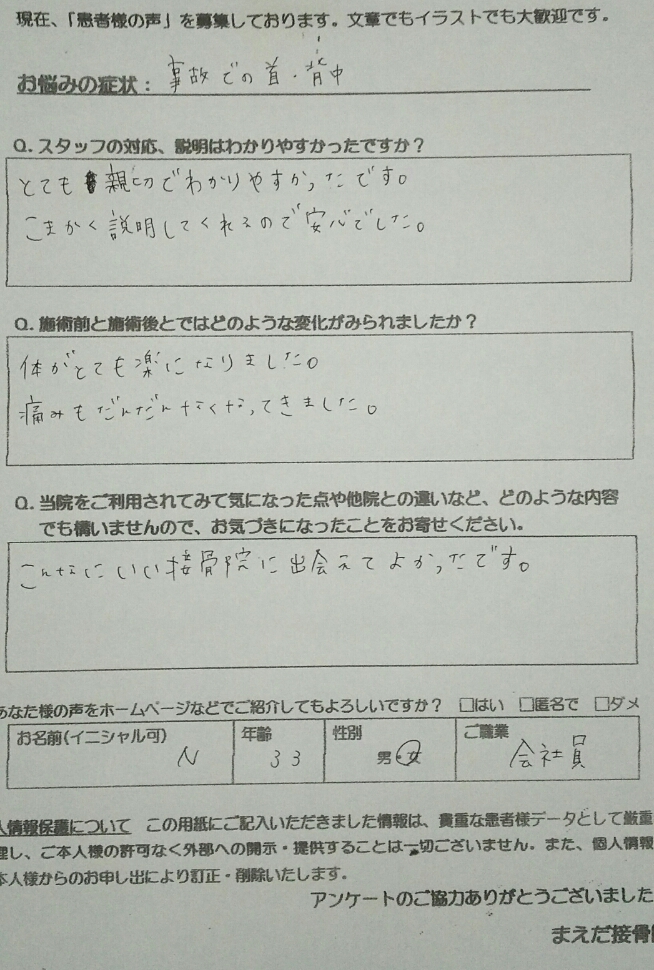 現在、「患者様の声」を募集しております。文章でもイラストでも大歓迎です。
お悩みの症状：事故での首・背中
Q. スタッフの対応、説明はわかりやすかったですか？
とても親切でわかりやすかったです。
こまかく説明してくれるので安心でした。
Q. 施術前と施術後とではどのような変化がみられましたか？
体がとても楽になりました。
痛みもだんだんなくなってきました。
Q. 当院をご利用されてみて気になった点や他院との違いなど、どのような内容
でも構いませんので、お気づきになったことをお寄せください。
こんなにいい接骨院に出会えてよかったです。
あなた様の声をホームページなどでご紹介してもよろしいですか？ □はい □匿名で □ダメ
お名前(イニシャル可) 年齢 性別 ご職業
N 33 男・女 会社員
人情報保護について この用紙にご記入いただきました情報は、貴重な患者様データとして厳重
理し、ご本人様の許可なく外部への開示・提供することは一切ございません。また、個人情報
本人様からのお申し出により訂正・削除いたします。
アンケートのご協力ありがとうございました
まえだ接骨